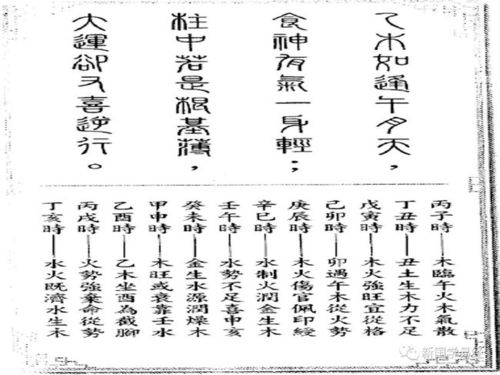 乙木如逢午月天，
食神有氣一身輕；
柱中若是根基薄，
大運卻又喜逆行。
丙子時——木臨午火木氣散
丁丑時——丑土生木力不足
戊寅時——木火強旺宜從格
己卯時——卯遇午木從火勢
庚辰時——木火傷官佩印綬
辛巳時——水制火潤金生木
壬午時——水勢不足喜申亥
癸未時——金生水源潤燥木
甲申時——木旺或衰靠壬水
乙酉時——乙木坐酉為截腳
丙戌時——火勢強棄命從勢
丁亥時——水火既濟水生木